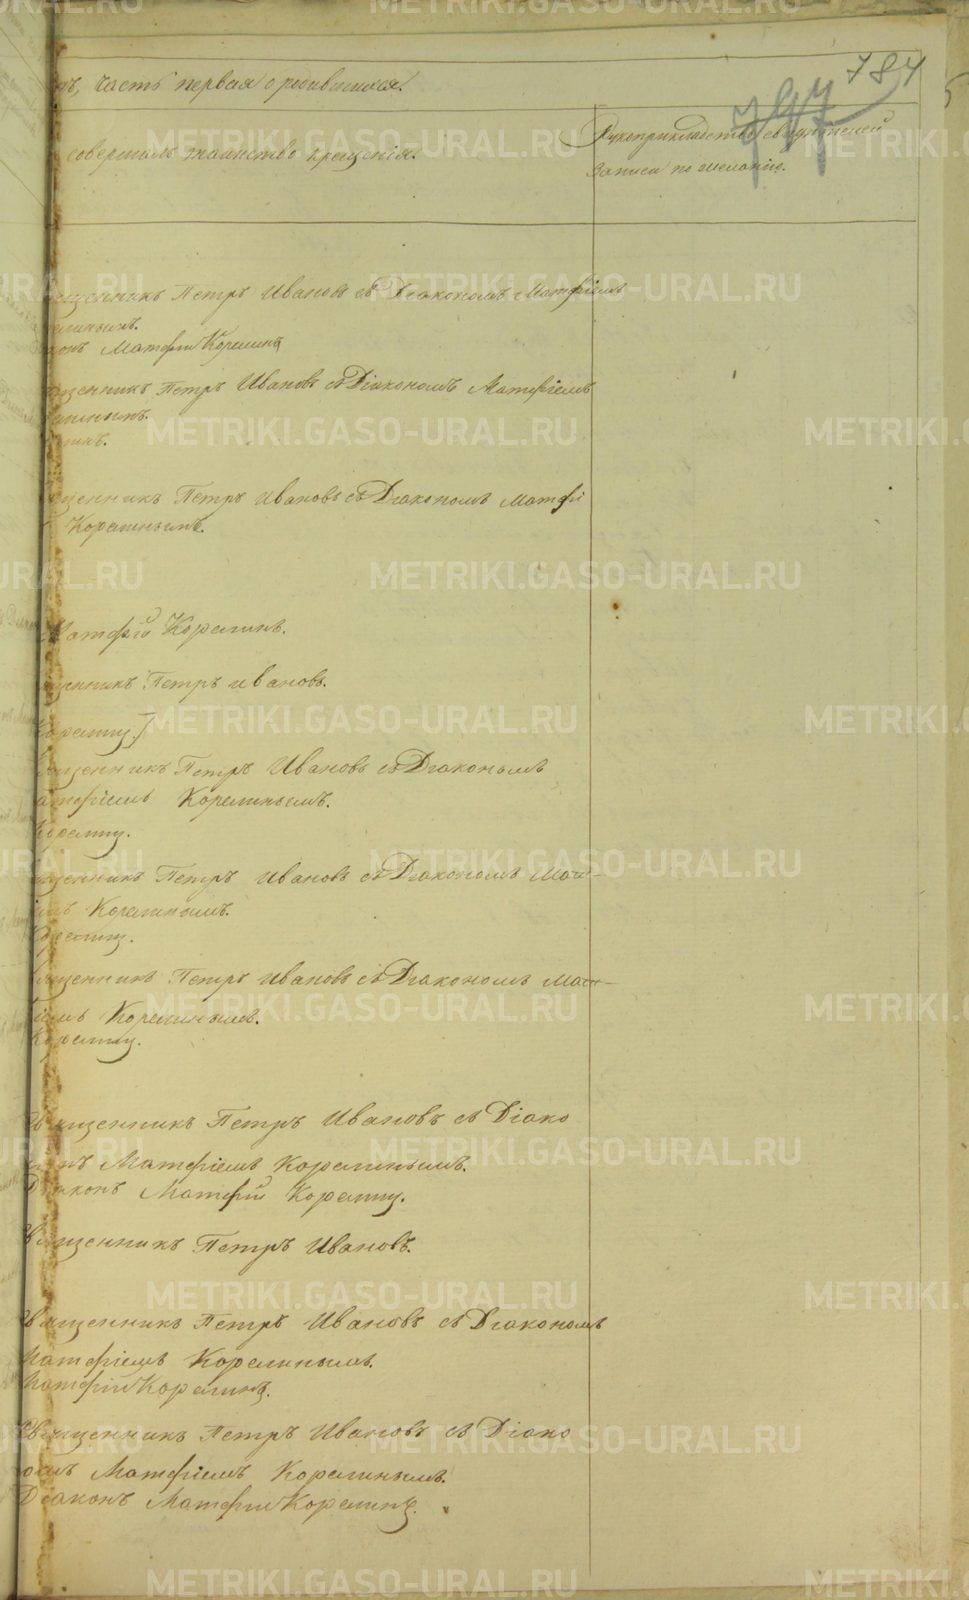 784
747
часть первая о родившихся.
совершалъ таинство крещенія.
Рукоприкладство свидѣтелей
записи по желанію.
Петръ Ивановъ съ Діакономъ Матфіемъ
Матфій Корелинъ
Петръ Ивановъ съ Діакономъ Матфіемъ
Петръ Ивановъ съ Діакономъ Матфі
Корелинымъ.
Матфій Корелинъ.
Петръ Ивановъ.
Священникъ Петръ Ивановъ съ Діакономъ
Матфіемъ Корелинымъ.
Петръ Ивановъ съ Діакономъ Мат-
Корелинымъ.
Священникъ Петръ Ивановъ съ Діакономъ Мат-
Корелинымъ.
Священникъ Петръ Ивановъ съ Діако
Матфіемъ Корелинымъ.
Діаконъ Матфій Корелинъ.
Священникъ Петръ Ивановъ.
Священникъ Петръ Ивановъ съ Діакономъ
Матфіемъ Корелинымъ.
Матфій Корелинъ.
Священникъ Петръ Ивановъ съ Діако
номъ Матфіемъ Корелинымъ.
Діаконъ Матфій Корелинъ.
METRIKI.GASO-URAL.RU